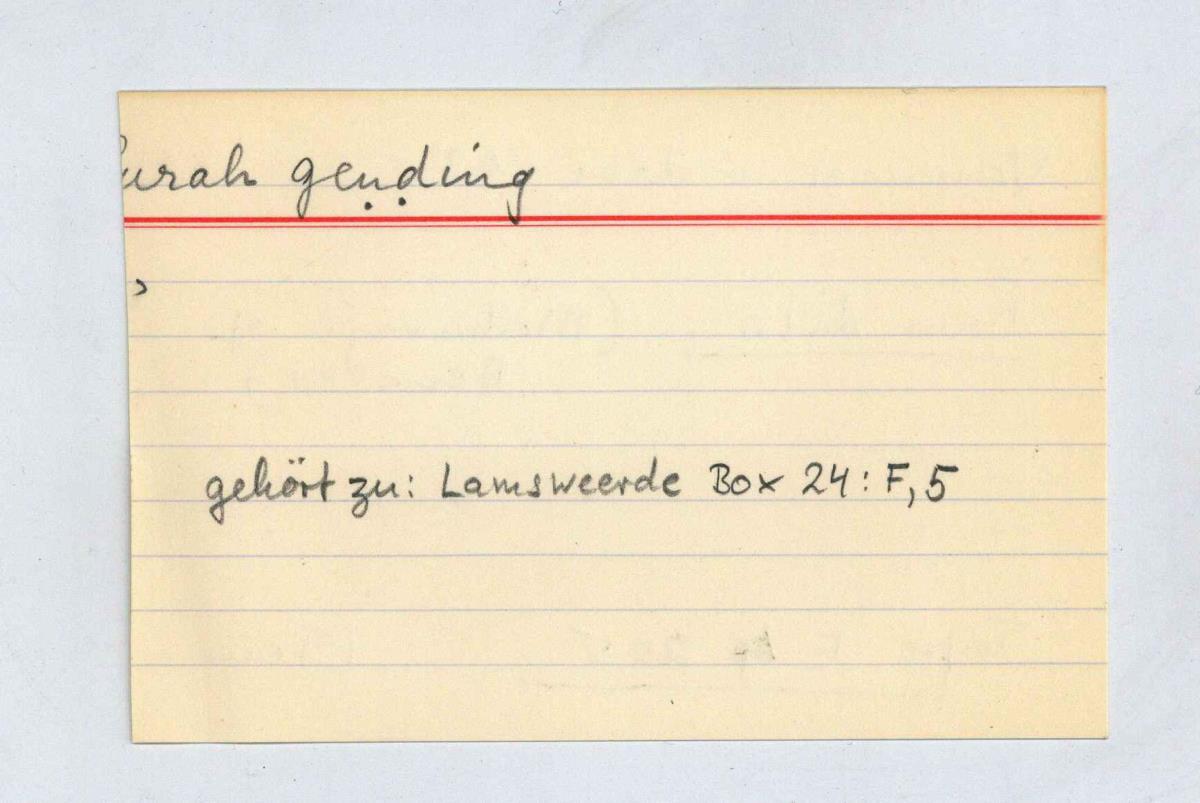 urah geṇḍing
gehört zu: Lamsweerde Box 24: F,5